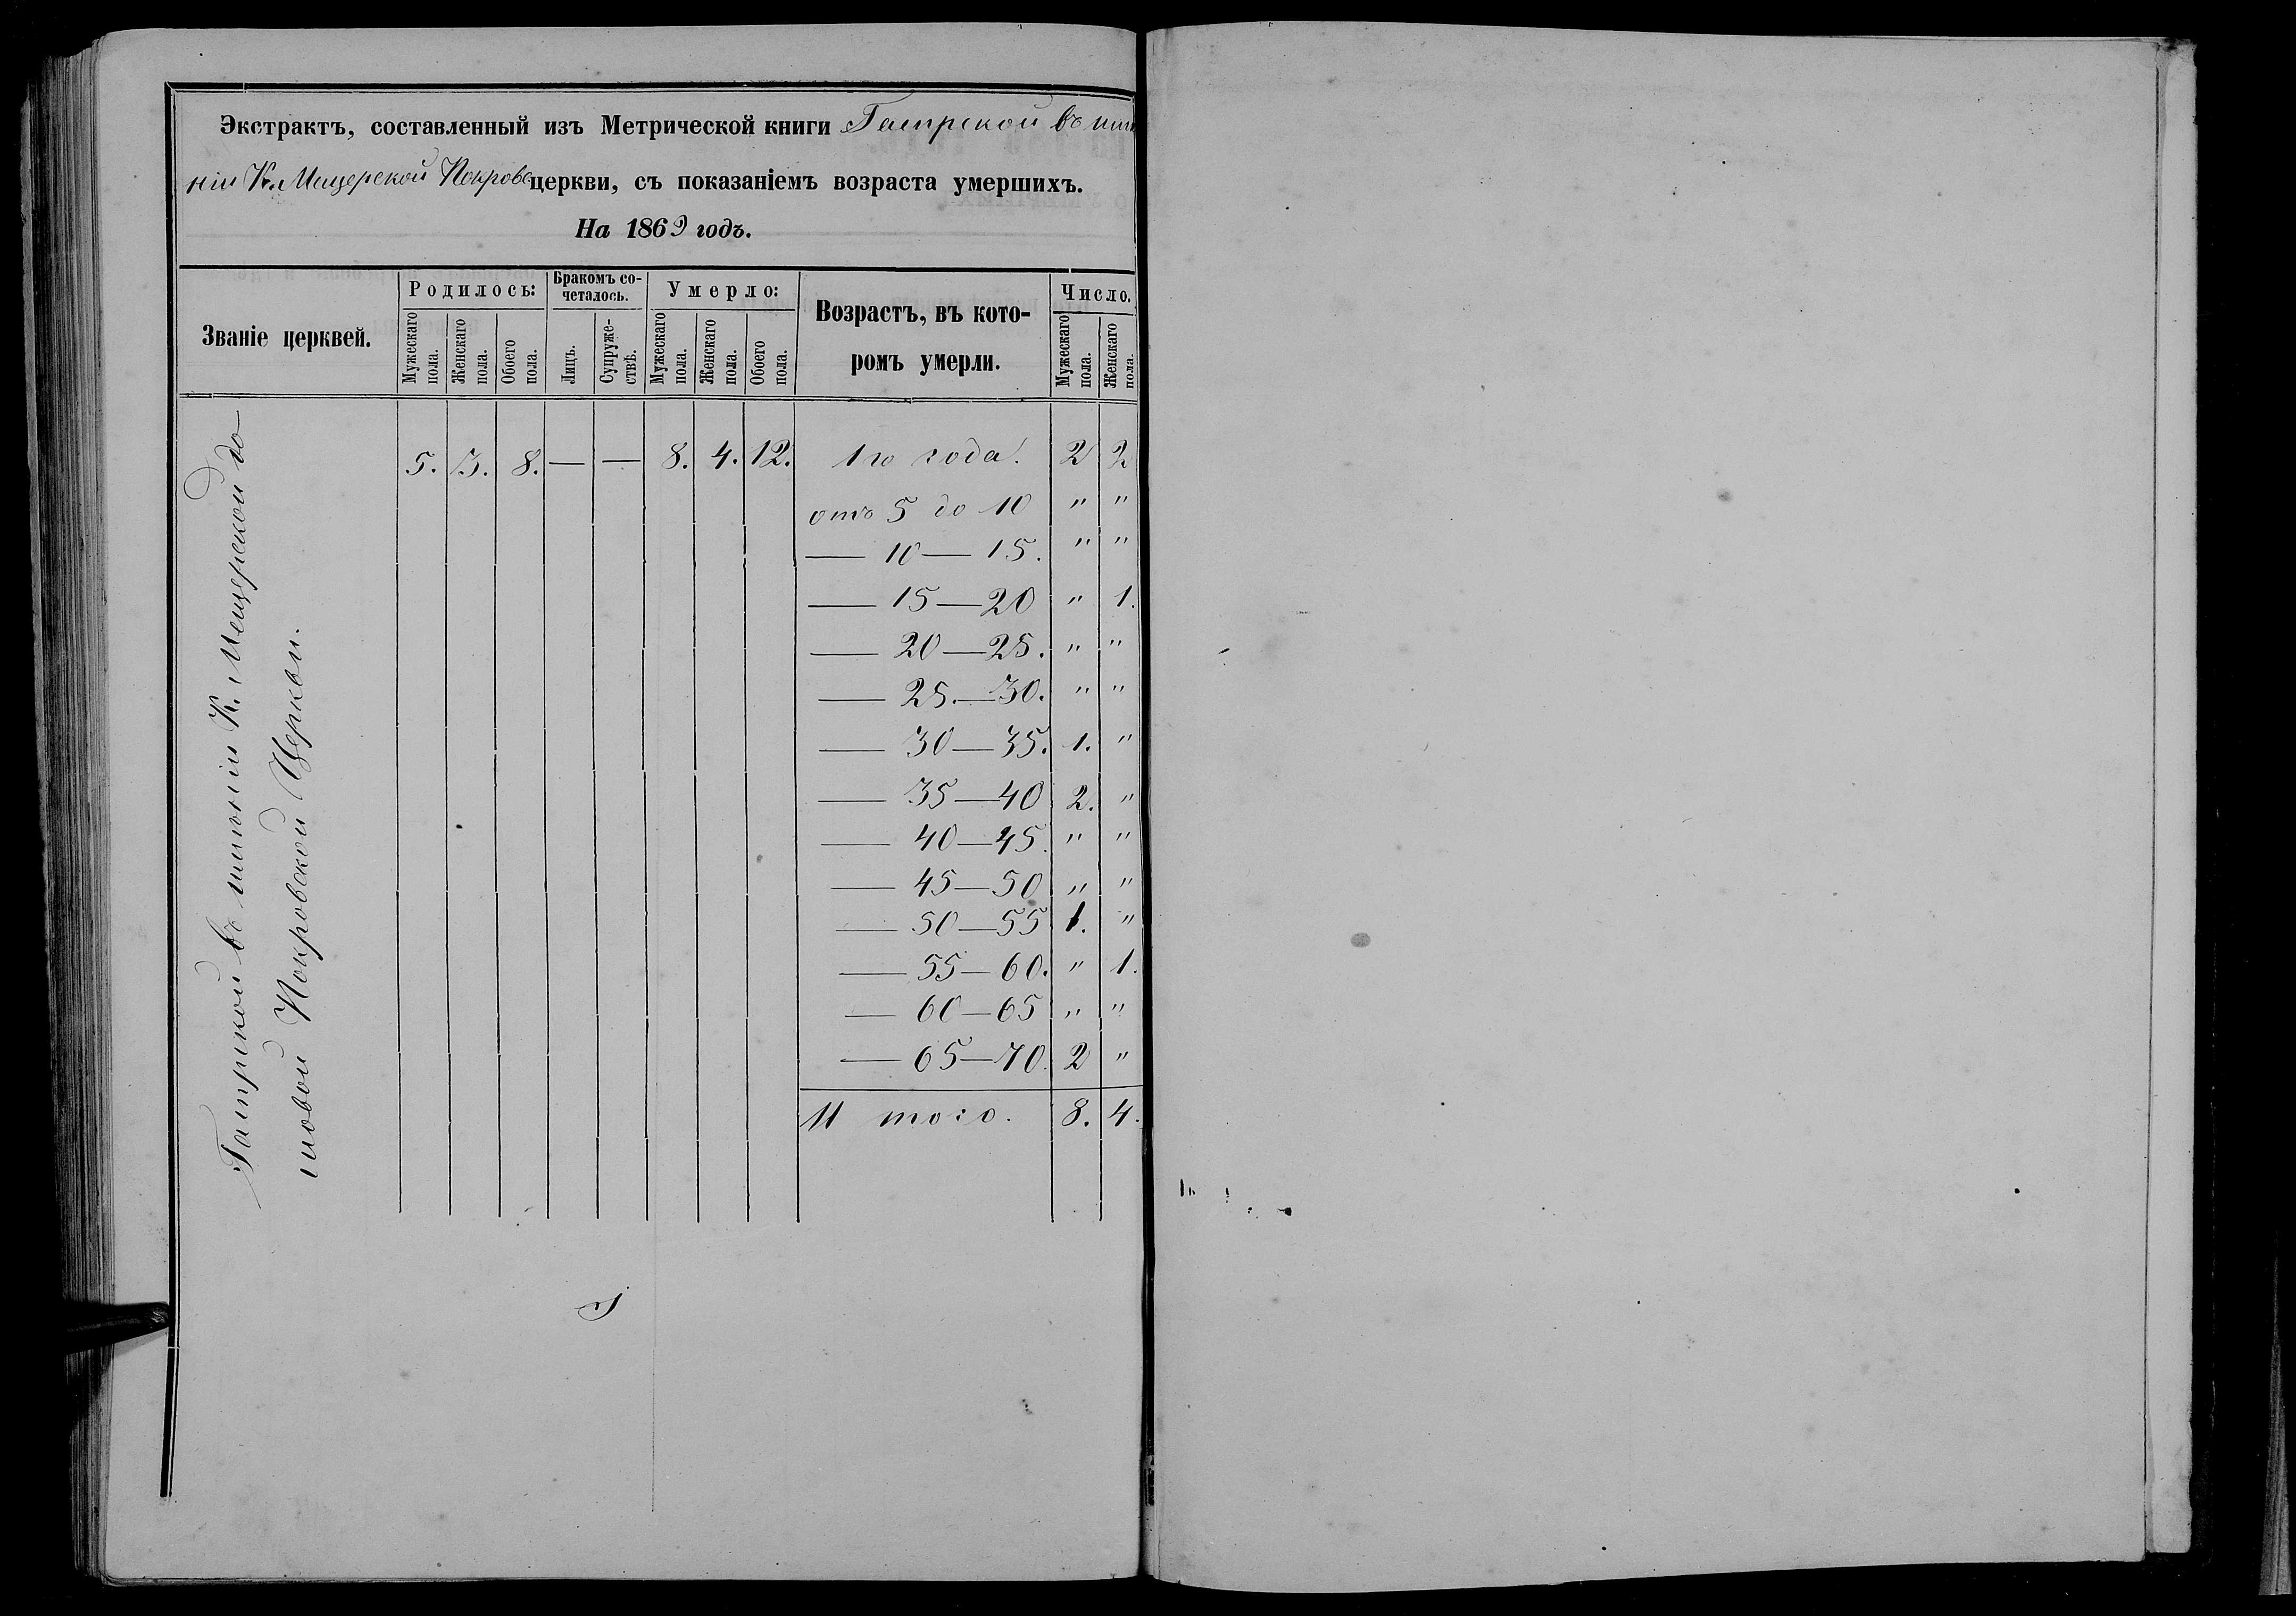 Экстрактъ, составленный изъ Метрической книги Гатрской въ имѣ
ніи Кн. Мещерской Покровс церкви, съ показаніемъ возраста умершихъ.
На 1869 годъ.
Званіе церквей.
Родилось:
Мужескаго пола.
Женскаго пола.
Обоего пола.
Бракомъ со-
четалось.
Лицъ.
Супруже-
ствъ.
Умерло:
Мужескаго пола.
Женскаго пола.
Обоего пола.
Возрастъ, въ кото-
ромъ умерли.
Число.
Мужескаго пола.
Женскаго пола.
въ имѣніи К. Мещерской до
мовой Покровской Церкви.
5. 3. 8. — — 8. 4. 12. 1го года. 2 2
отъ 5 до 10 " "
— 10 — 15. " "
— 15 — 20 " 1.
— 20 — 25. " "
— 25. — 30. " "
— 30 — 35. 1. "
— 35 — 40 2. "
— 40 — 45. " "
— 45 — 50 " "
— 50 — 55 1. "
— 55 — 60. " 1.
— 60 — 65 " "
— 65 — 70. 2 "
И того. 8. 4.